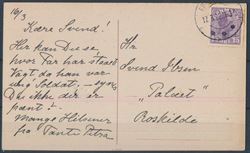 16/3
Kære Svend!
Her kan Du se,
hvor Far har staaet
Vagt da han var
Soldat. - synes
Du ikke der er
pænt? -
Mange Hilsener
fra Tante Petra
Hr
Svend Ibsen
"Palæet"
Roskilde